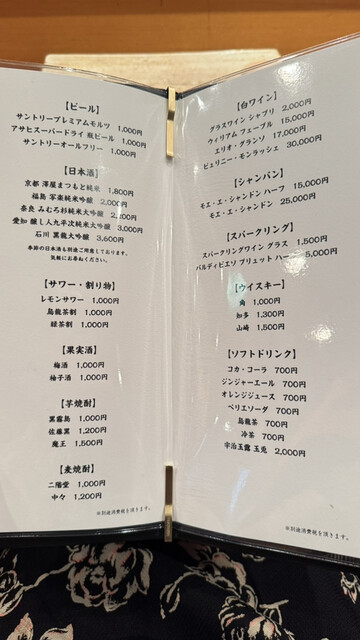 【ビール】
サントリープレミアムモルツ 1,000円
アサヒスーパードライ 瓶ビール 1,000円
サントリーオールフリー 1,000円
【日本酒】
京都 澤屋まつもと純米 1,800円
福島 写楽純米吟醸 2,000円
奈良 みむろ杉純米大吟醸 円
愛知 醸し人九平次純米大吟醸 3,000円
石川 黒龍大吟醸 3,600円
季節の日本酒も別途ご用意しております。
気軽にお尋ねください。
【サワー・割り物】
レモンサワー 1,000円
烏龍茶割 1,000円
緑茶割 1,000円
【果実酒】
梅酒 1,000円
柚子酒 1,000円
【芋焼酎】
黒霧島 1,000円
佐藤黒 1,200円
魔王 1,500円
【麦焼酎】
二階堂 1,000円
中々 1,200円
※別途消費税を頂きます。
【白ワイン】
グラスワイン シャブリ 2,000円
ウィリアム フェーブル 15,000円
エリオ・グランソ 17,000円
ピュリニー・モンラッシェ 30,000円
【シャンパン】
モエ・エ・シャンドン ハーフ 15,000円
モエ・エ・シャンドン 25,000円
【スパークリング】
スパークリングワイン グラス 1,500円
バルディビエソ ブリュット ハーフ 5,000円
【ウイスキー】
角 1,000円
知多 1,300円
山崎 1,500円
【ソフトドリンク】
コカ・コーラ 700円
ジンジャーエール 700円
オレンジジュース 700円
ペリエソーダ 700円
烏龍茶 700円
冷茶 700円
宇治玉露 玉兎 2,000円
※別途消費税を頂きます。